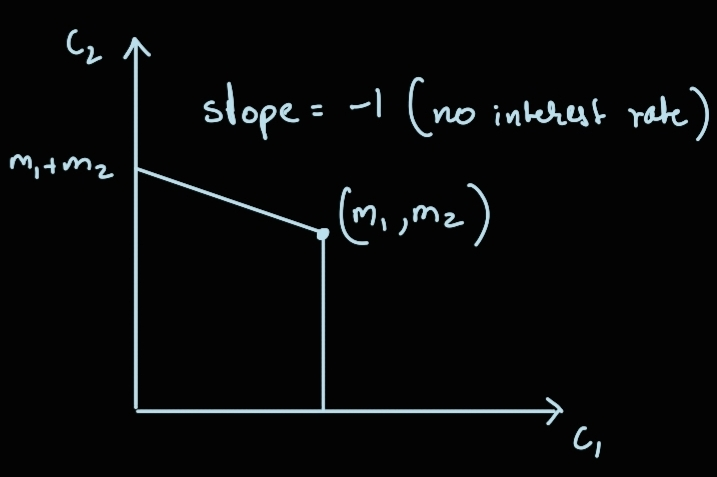 C₂
slope = -1 (no interest rate)
m₁+m₂
(m₁,m₂)
C₁